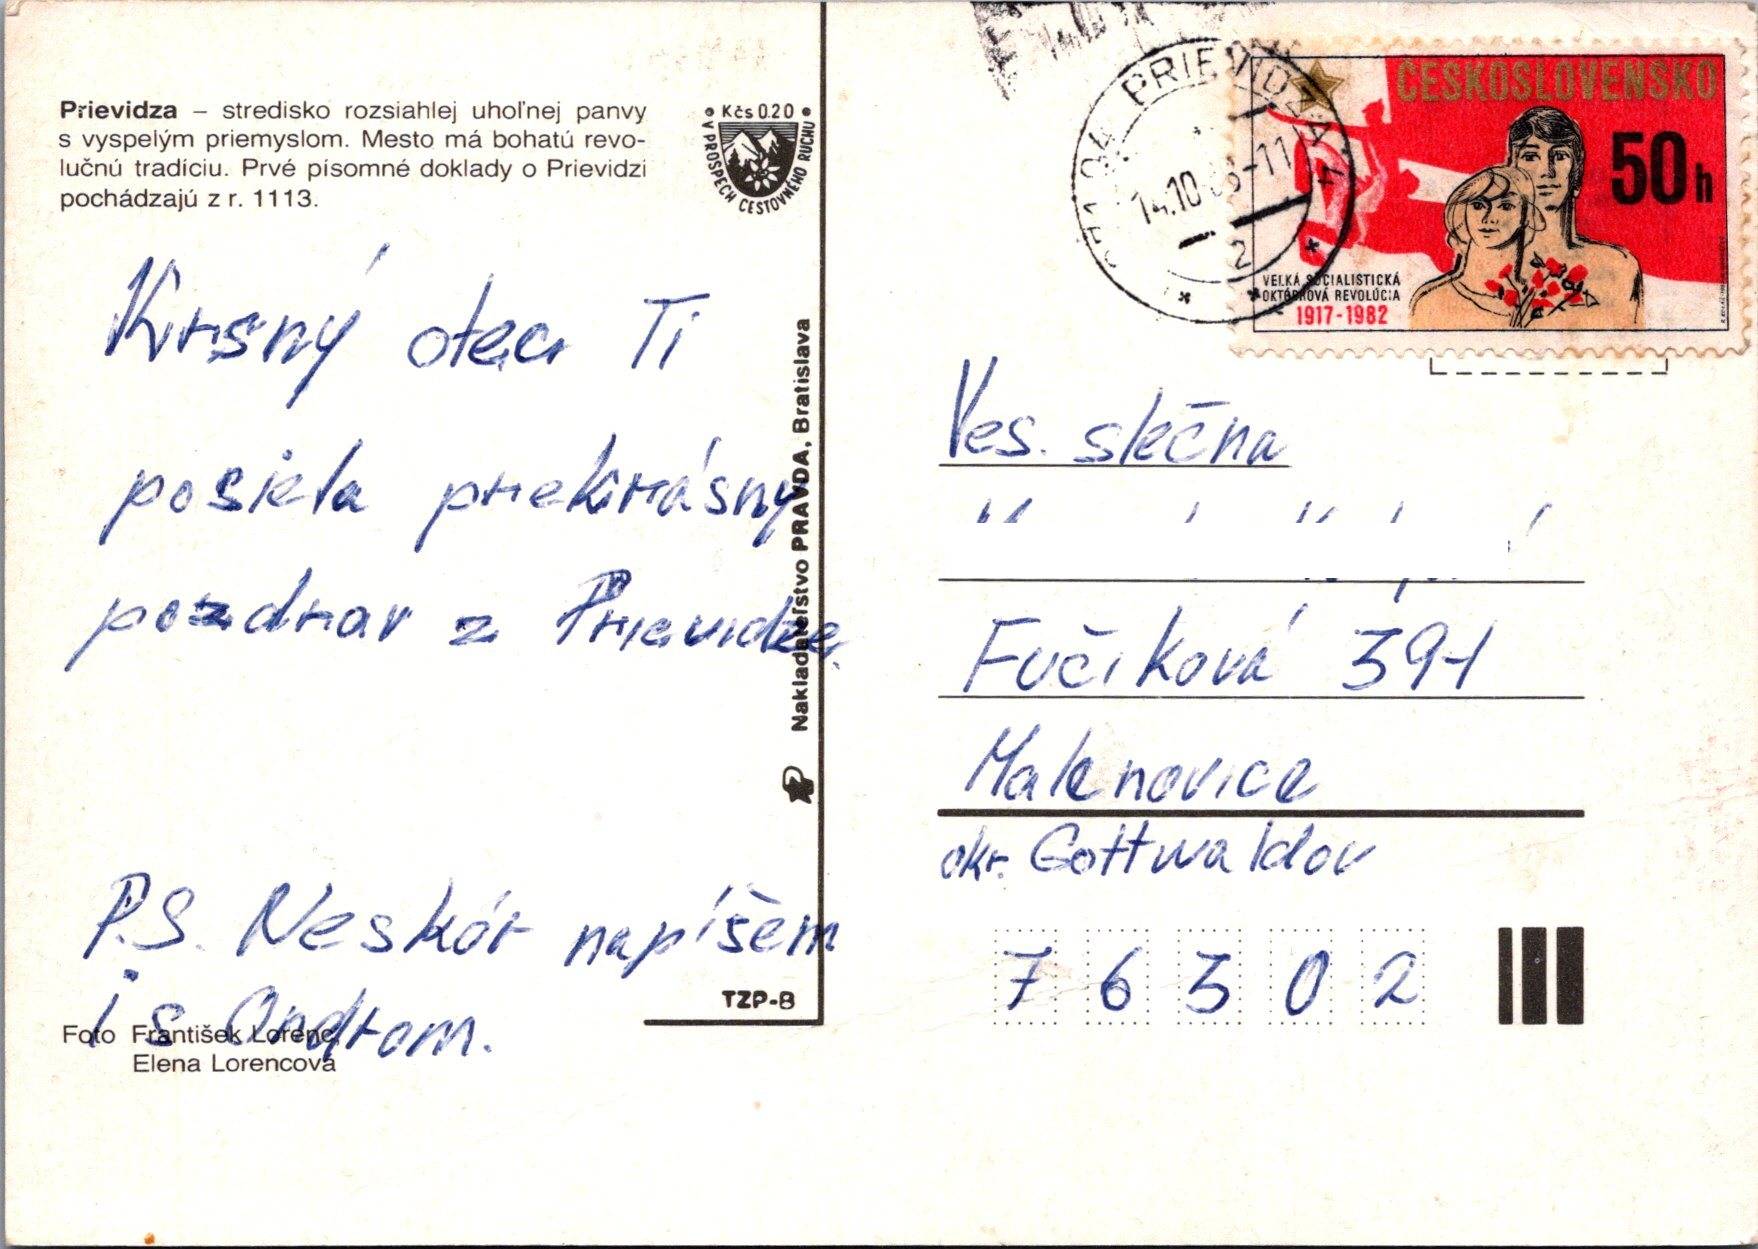 Prievidza – stredisko rozsiahlej uhoľnej panvy
s vyspelým priemyslom. Mesto má bohatú revo-
lučnú tradíciu. Prvé písomné doklady o Prievidzi
pochádzajú z r. 1113.
Kčs 0.20
V PROSPECH CESTOVNÉHO RUCHU
Krsný otec Ti
posiela prekrásny
pozdrav z Prievidze.
P.S. Neskôr napíšem
i s Ondrom.
Foto František Lorenc,
Elena Lorencová
Nakladateľstvo PRAVDA, Bratislava
TZP-8
PRIEVIDZA 4
14.10.83-11
2
ČESKOSLOVENSKO
50 h
VEĽKÁ SOCIALISTICKÁ
OKTÓBROVÁ REVOLÚCIA
1917-1982
Ves. slečna
Fučíková 391
Malenovice
okr. Gottwaldov
76302